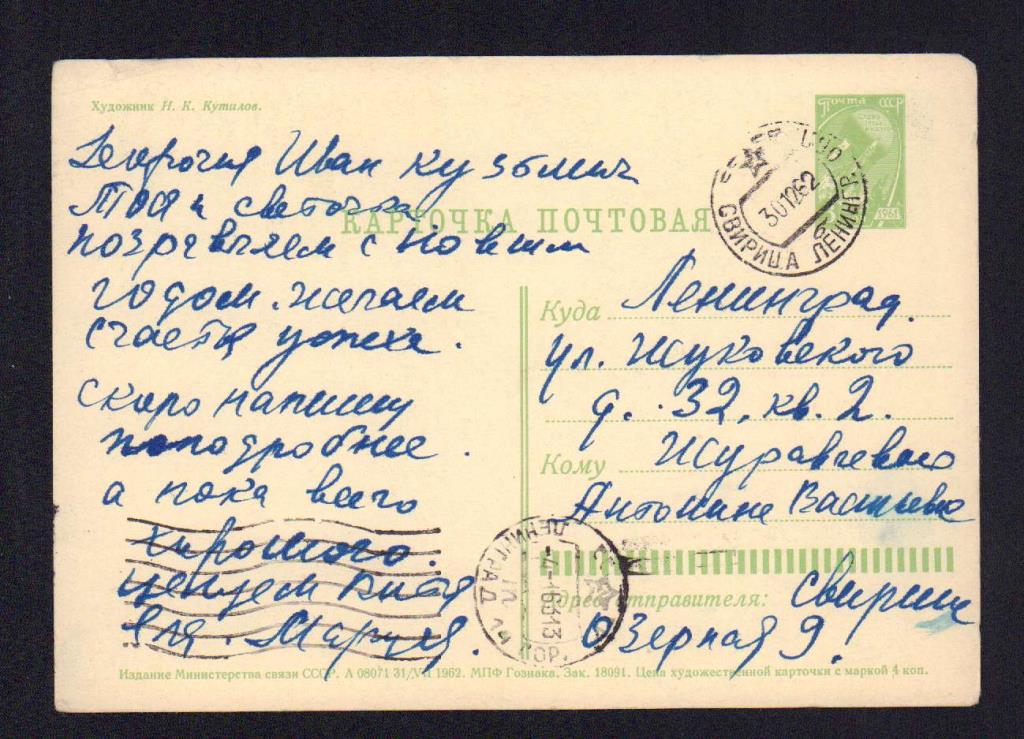 Художник Н. К. Кутилов.
ПОЧТА СССР
1961
СВИРИЦА ЛЕНИНГР.
301262
КАРТОЧКА ПОЧТОВАЯ
Иван Кузьмич
Тоя и светочка
поздравляем с Новым
годом. желаем
счастья успеха.
Скоро напишу
поподробнее.
а пока всего
хорошего.
целуем
Маруся.
Куда Ленинград.
ул. Жуковского
д. 32, кв. 2.
Кому Журавлевой
Антонине Васильевне
ЛЕНИНГРАД
-4-16313
Адрес отправителя: Свирица
Озерная 9.
Издание Министерства связи СССР. А 08071 31/VII 1962. МПФ Гознака. Зак. 18091. Цена художественной карточки с маркой 4 коп.